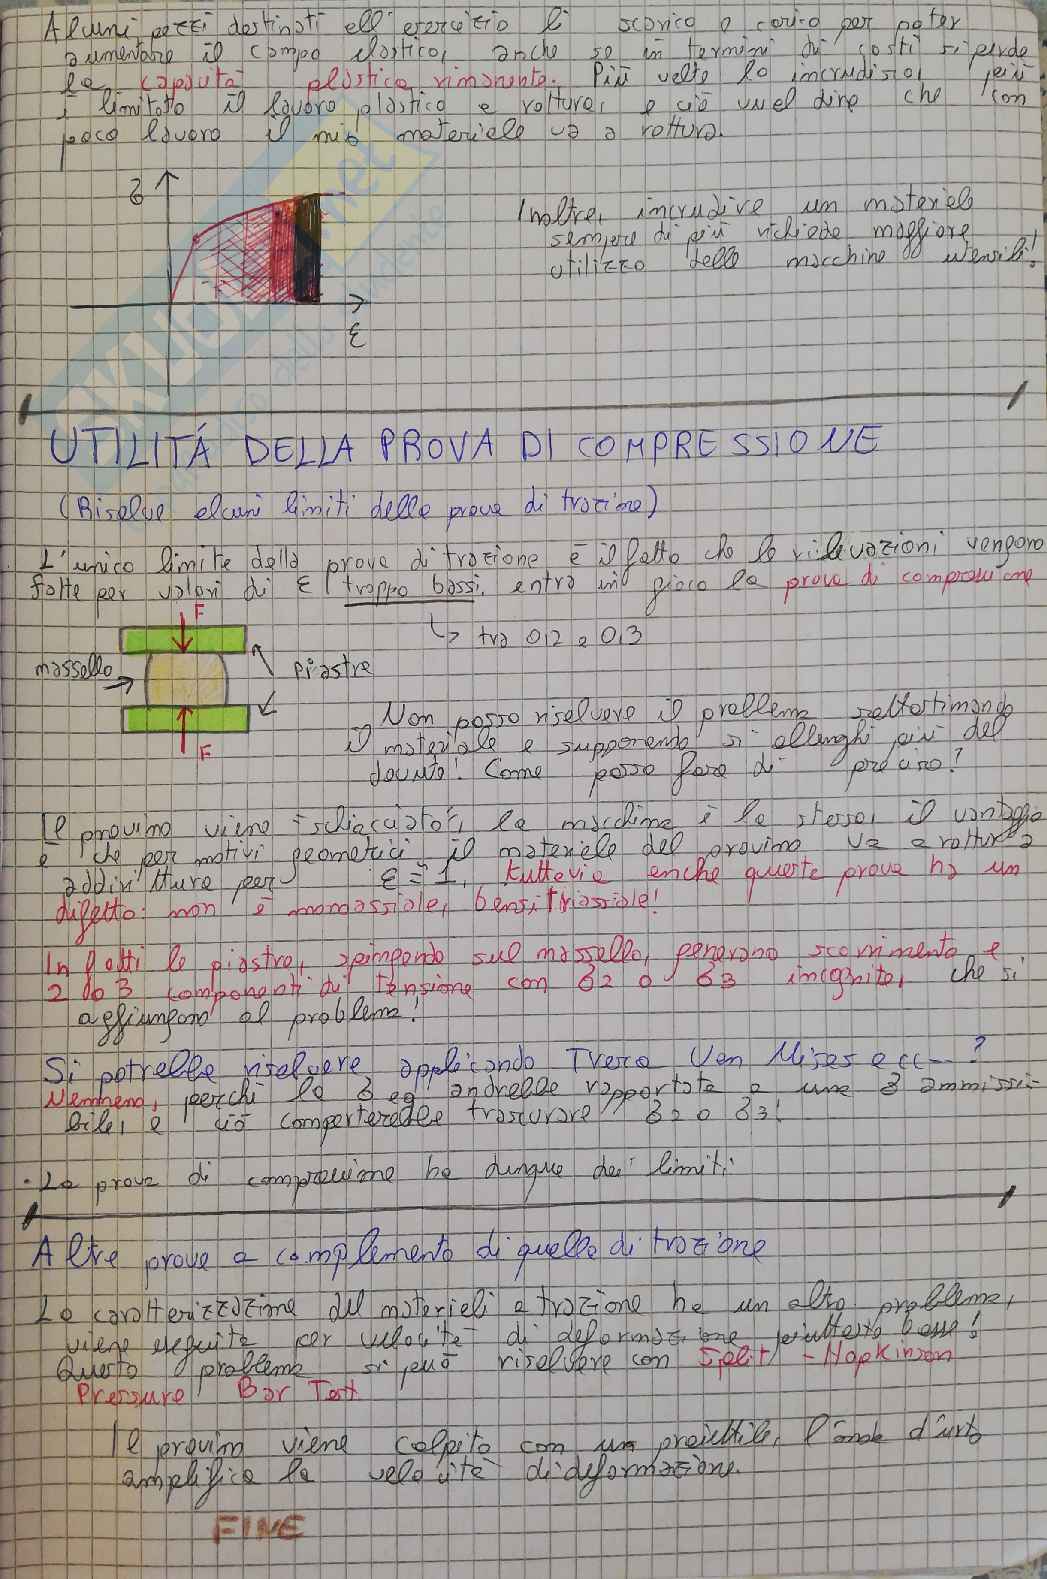 Alcuni pezzi destinati all'esercizio li scarico e carico per poter
aumentare il campo elastico, anche se in termini di costi si perde
la capacità plastica rimanente. Più volte lo incrudisco, più
è limitato il lavoro plastico a rottura, e ciò vuol dire che con
poco lavoro il mio materiale va a rottura.
σ
ε
Inoltre, incrudire un materiale
sempre di più richiede maggiore
utilizzo delle macchine utensili!
UTILITÁ DELLA PROVA DI COMPRESSIONE
(Risolve alcuni limiti della prova di trazione)
L'unico limite della prova di trazione è il fatto che le rilevazioni vengono
fatte per valori di ε troppo bassi, entra in gioco la prova di compressione
↳ tra 0,2 e 0,3
F
massello
piastre
F
Non posso risolvere il problema sottostimando
il materiale e supponendo si allunghi più del
dovuto! Come posso fare di preciso?
Il provino viene "schiacciato", la macchina è la stessa, il vantaggio
è che per motivi geometrici il materiale del provino va a rottura
addirittura per ε = 1, tuttavia anche questa prova ha un
difetto: non è monoassiale, bensì triassiale!
Infatti le piastre, spingendo sul massello, generano scorrimento e
2 o 3 componenti di tensione con σ2 o σ3 incognite, che si
aggiungono al problema!
Si potrebbe risolvere applicando Tresca Von Mises ecc...?
Nemmeno, perché la σ eq andrebbe rapportata a una σ ammissi-
bile, e ciò comporterebbe trascurare σ2 o σ3!
· La prova di compressione ha dunque dei limiti
Altre prove a complemento di quella di trazione
La caratterizzazione dei materiali a trazione ha un altro problema,
viene eseguita per velocità di deformazione piuttosto basse!
Questo problema si può risolvere con Split - Hopkinson
Pressure Bar Test
Il provino viene colpito con un proiettile, l'onda d'urto
amplifica la velocità di deformazione.
FINE